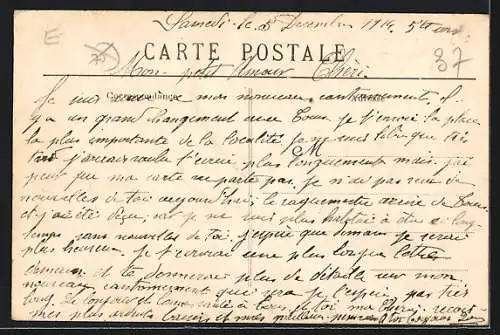 Samedi le 5 Décembre 1914, 5 h
E
37
CARTE POSTALE
Mon petit Amour Chéri.
Correspondance
Je suis mon nouveau cantonnement, il
y a un grand changement avec je t'envoi la place
la plus importante de la localité je ne suis libre que très
tard j'aurais voulu t'écrire plus longuement mais j'ai
peur que ma carte ne parte pas. Je n'ai pas reçu de
nouvelles de toi aujourd'hui, le vaguemestre arrive de
et j'ai été déçu, car je ne suis plus habitué à être si long-
temps sans nouvelles de toi, j'espère que demain je serai
plus heureux. Je t'écrirai une plus longue lettre
demain et te donnerai plus de détails sur mon
nouveau cantonnement qui sera je l'espère pas très
long. toi ma Chérie, reçois
mes plus ardents baisers et mes meilleurs